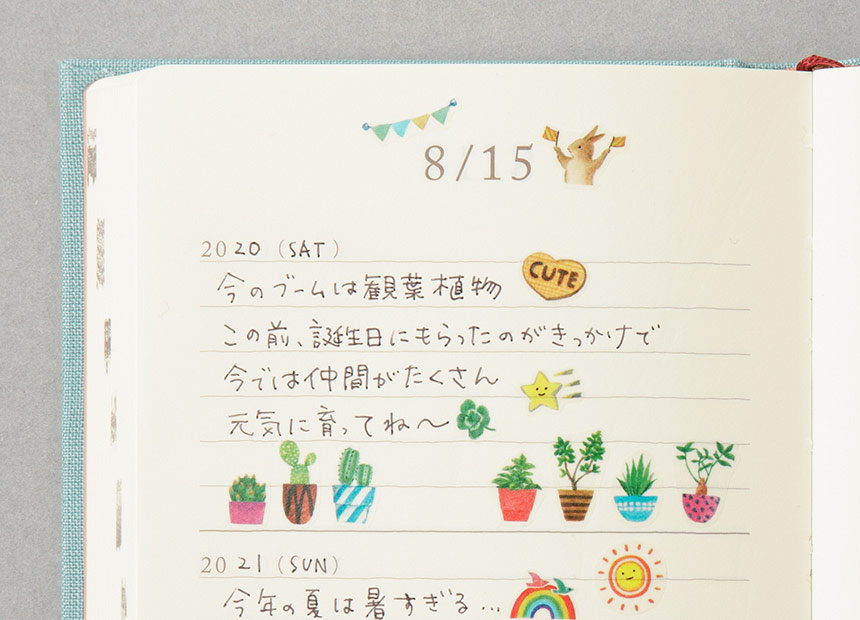 8/15
2020 (SAT)
CUTE
今のブームは観葉植物
この前、誕生日にもらったのがきっかけで
今では仲間がたくさん
元気に育ってね〜
2021 (SUN)
今年の夏は暑すぎる...